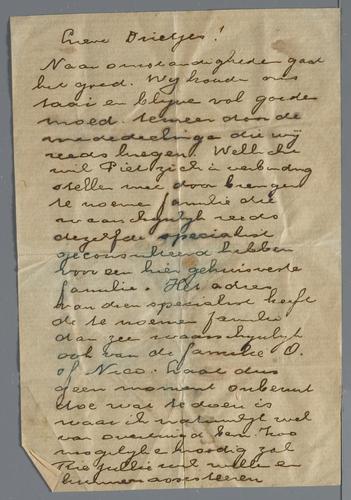 Lieve Drietjes!
Naar omstandigheden gaat
het goed. Wij houden ons
taai en blijve vol goeden
moed. temeer door de
mededeelinge die wij
reeds kregen. Wellicht
wil Piet zich in verbinding
stellen met door brenger
te noeme familie die
waarschijnlijk reeds
dezelfde specialist
geconsulteerd hebben
voor een hier gehuisveste
familie. Het adres
van dien specialist heeft
de te noemen familie
dan zeer waarschijnlijk
ook van de familie O.
of Nico. Laat dus
geen moment onbenut
doe wat te doen is
waar ik natuurlijk wel
van overtuigd ben. Zoo
mogelijk noodig zal
jullie wel willen en
kunnen assisteren